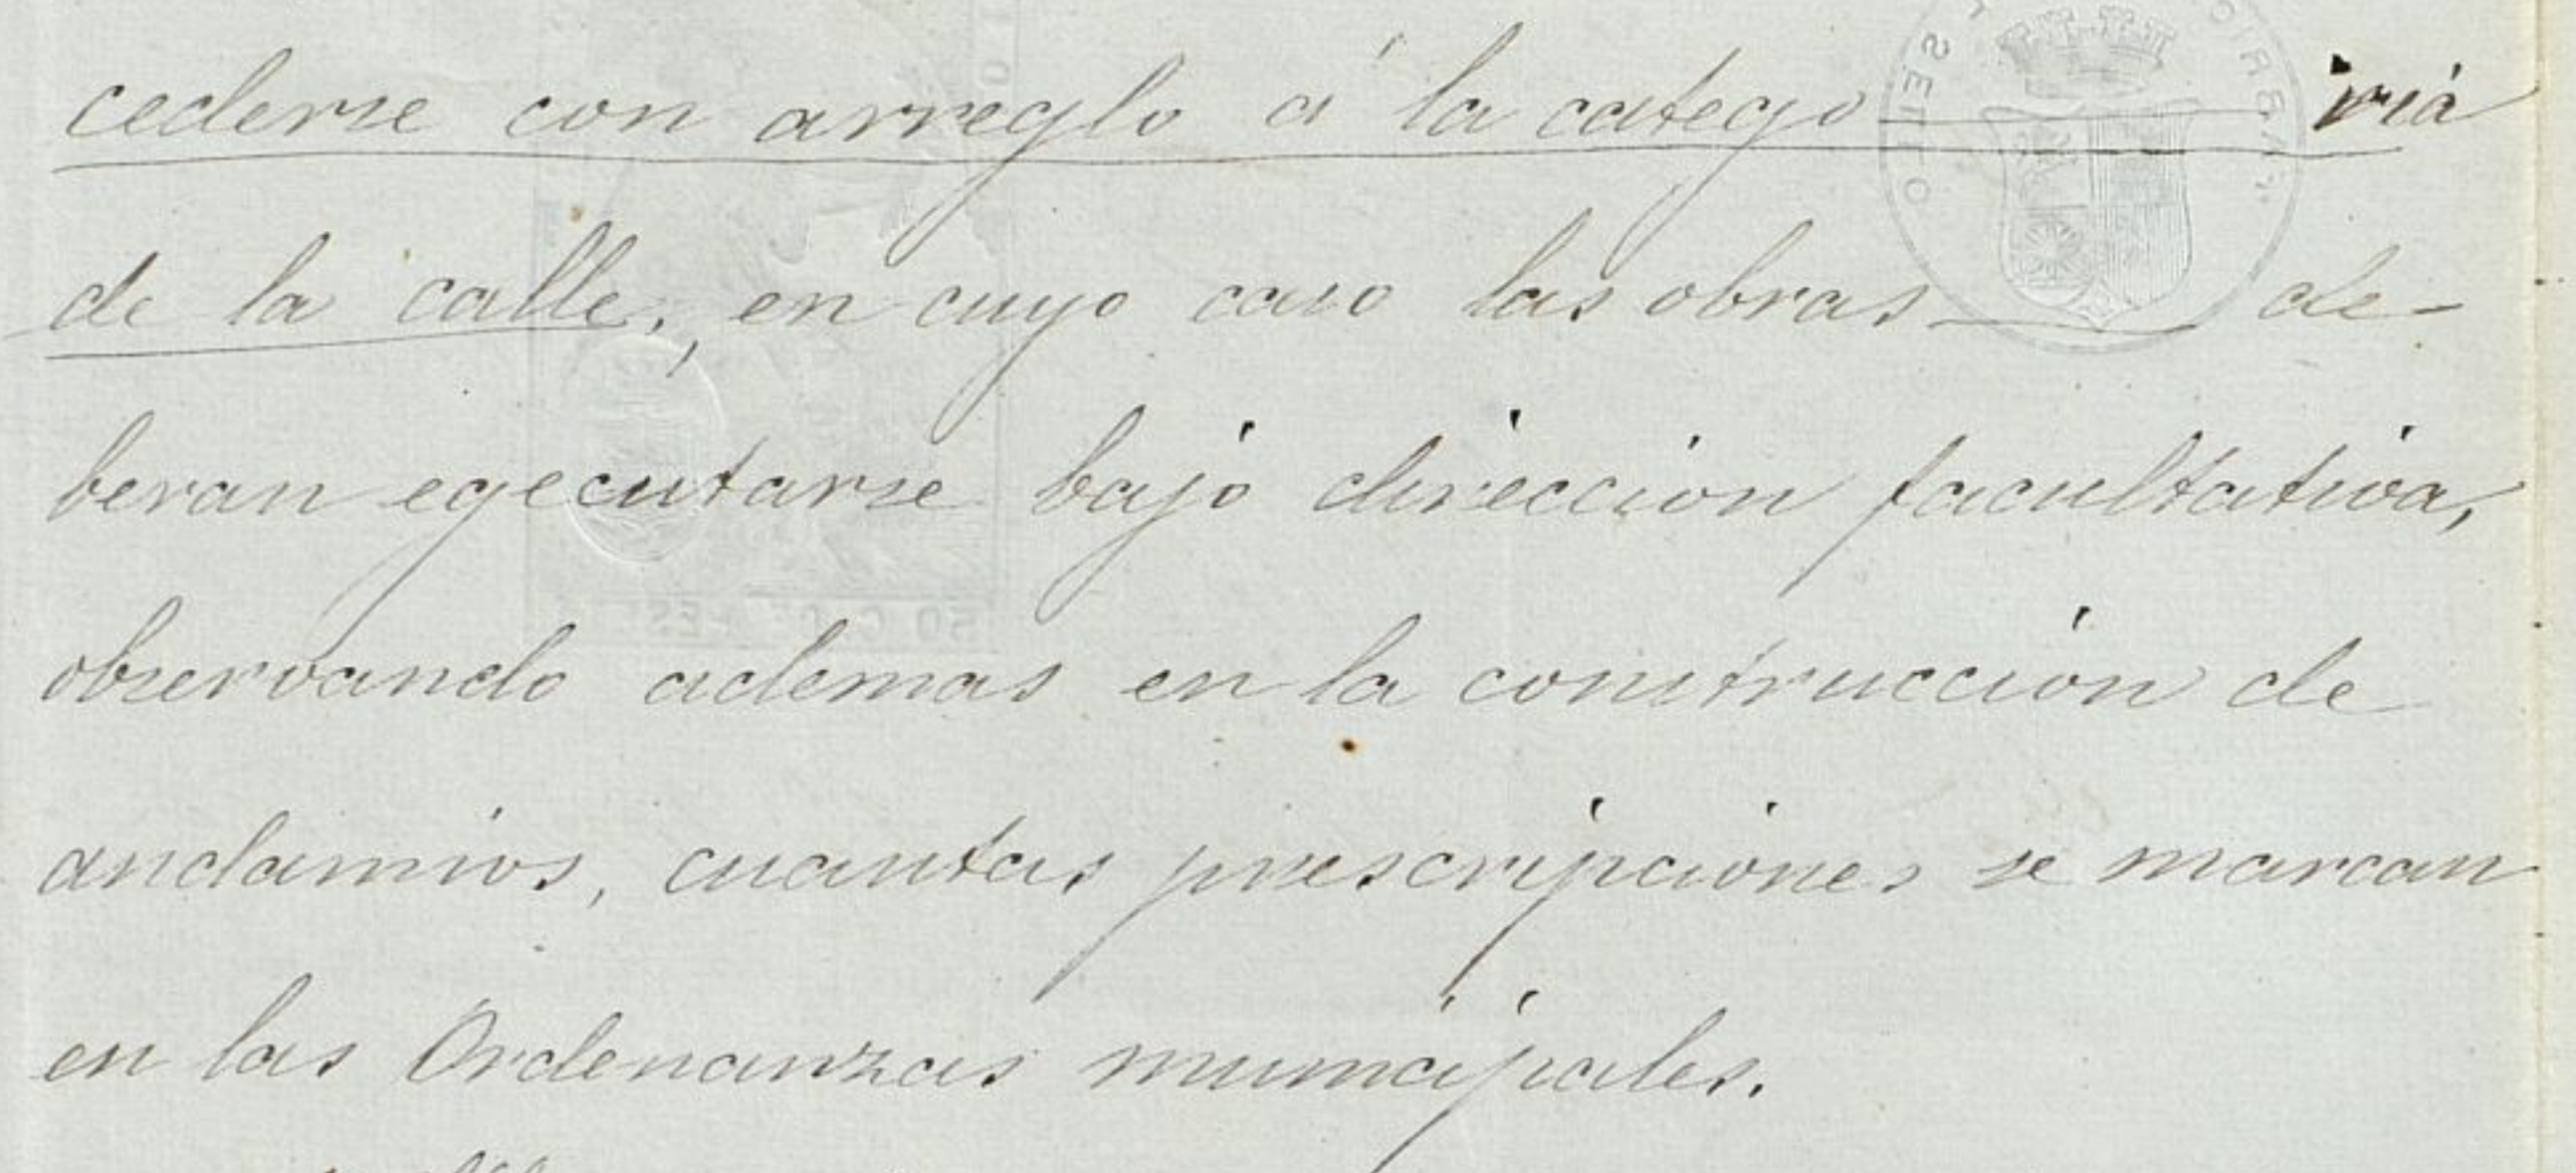 cederse con arreglo á la catego ria
de la calle, en cuyo caso las obras de-
beran egecutarse bajo direccion facultativa,
observando ademas en la construccion de
andamios, cuantas prescripciones se marcan
en las Ordenanzas municipales.